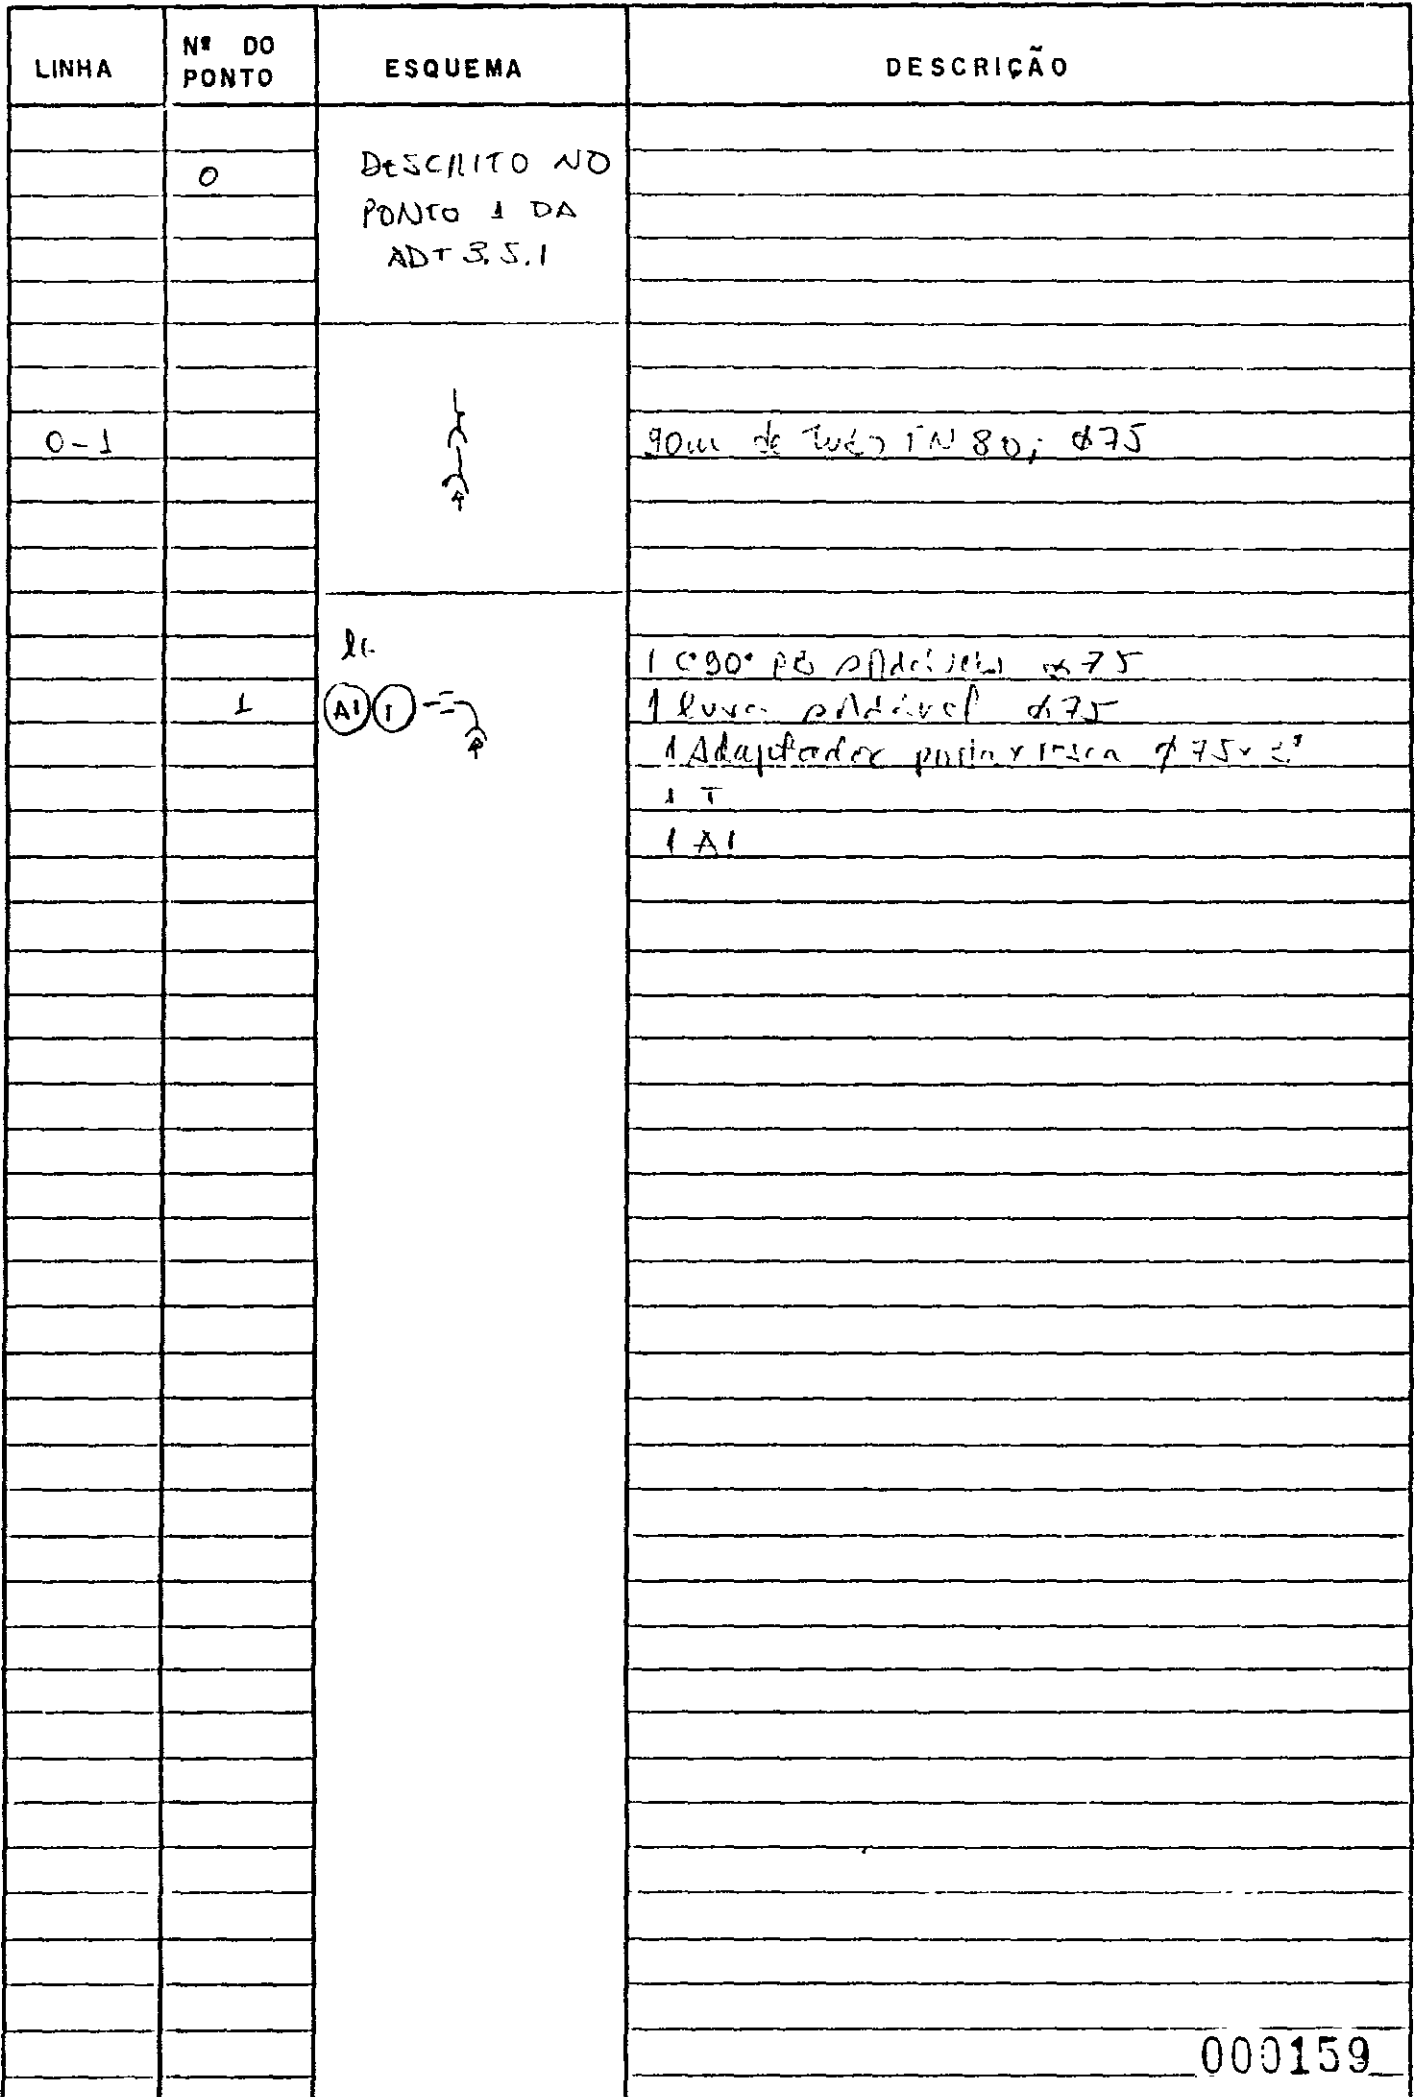 LINHA
Nº DO
PONTO
ESQUEMA
DESCRIÇÃO
0
DESCRITO NO
PONTO 1 DA
ADT 3.5.1
0-1
90m de Tubo PN 80; ø75
1
A1
1 C 90° soldável ø 75
1 luva soldável ø75
1 Adaptador ø 75 x
1 T
1 A1
000159